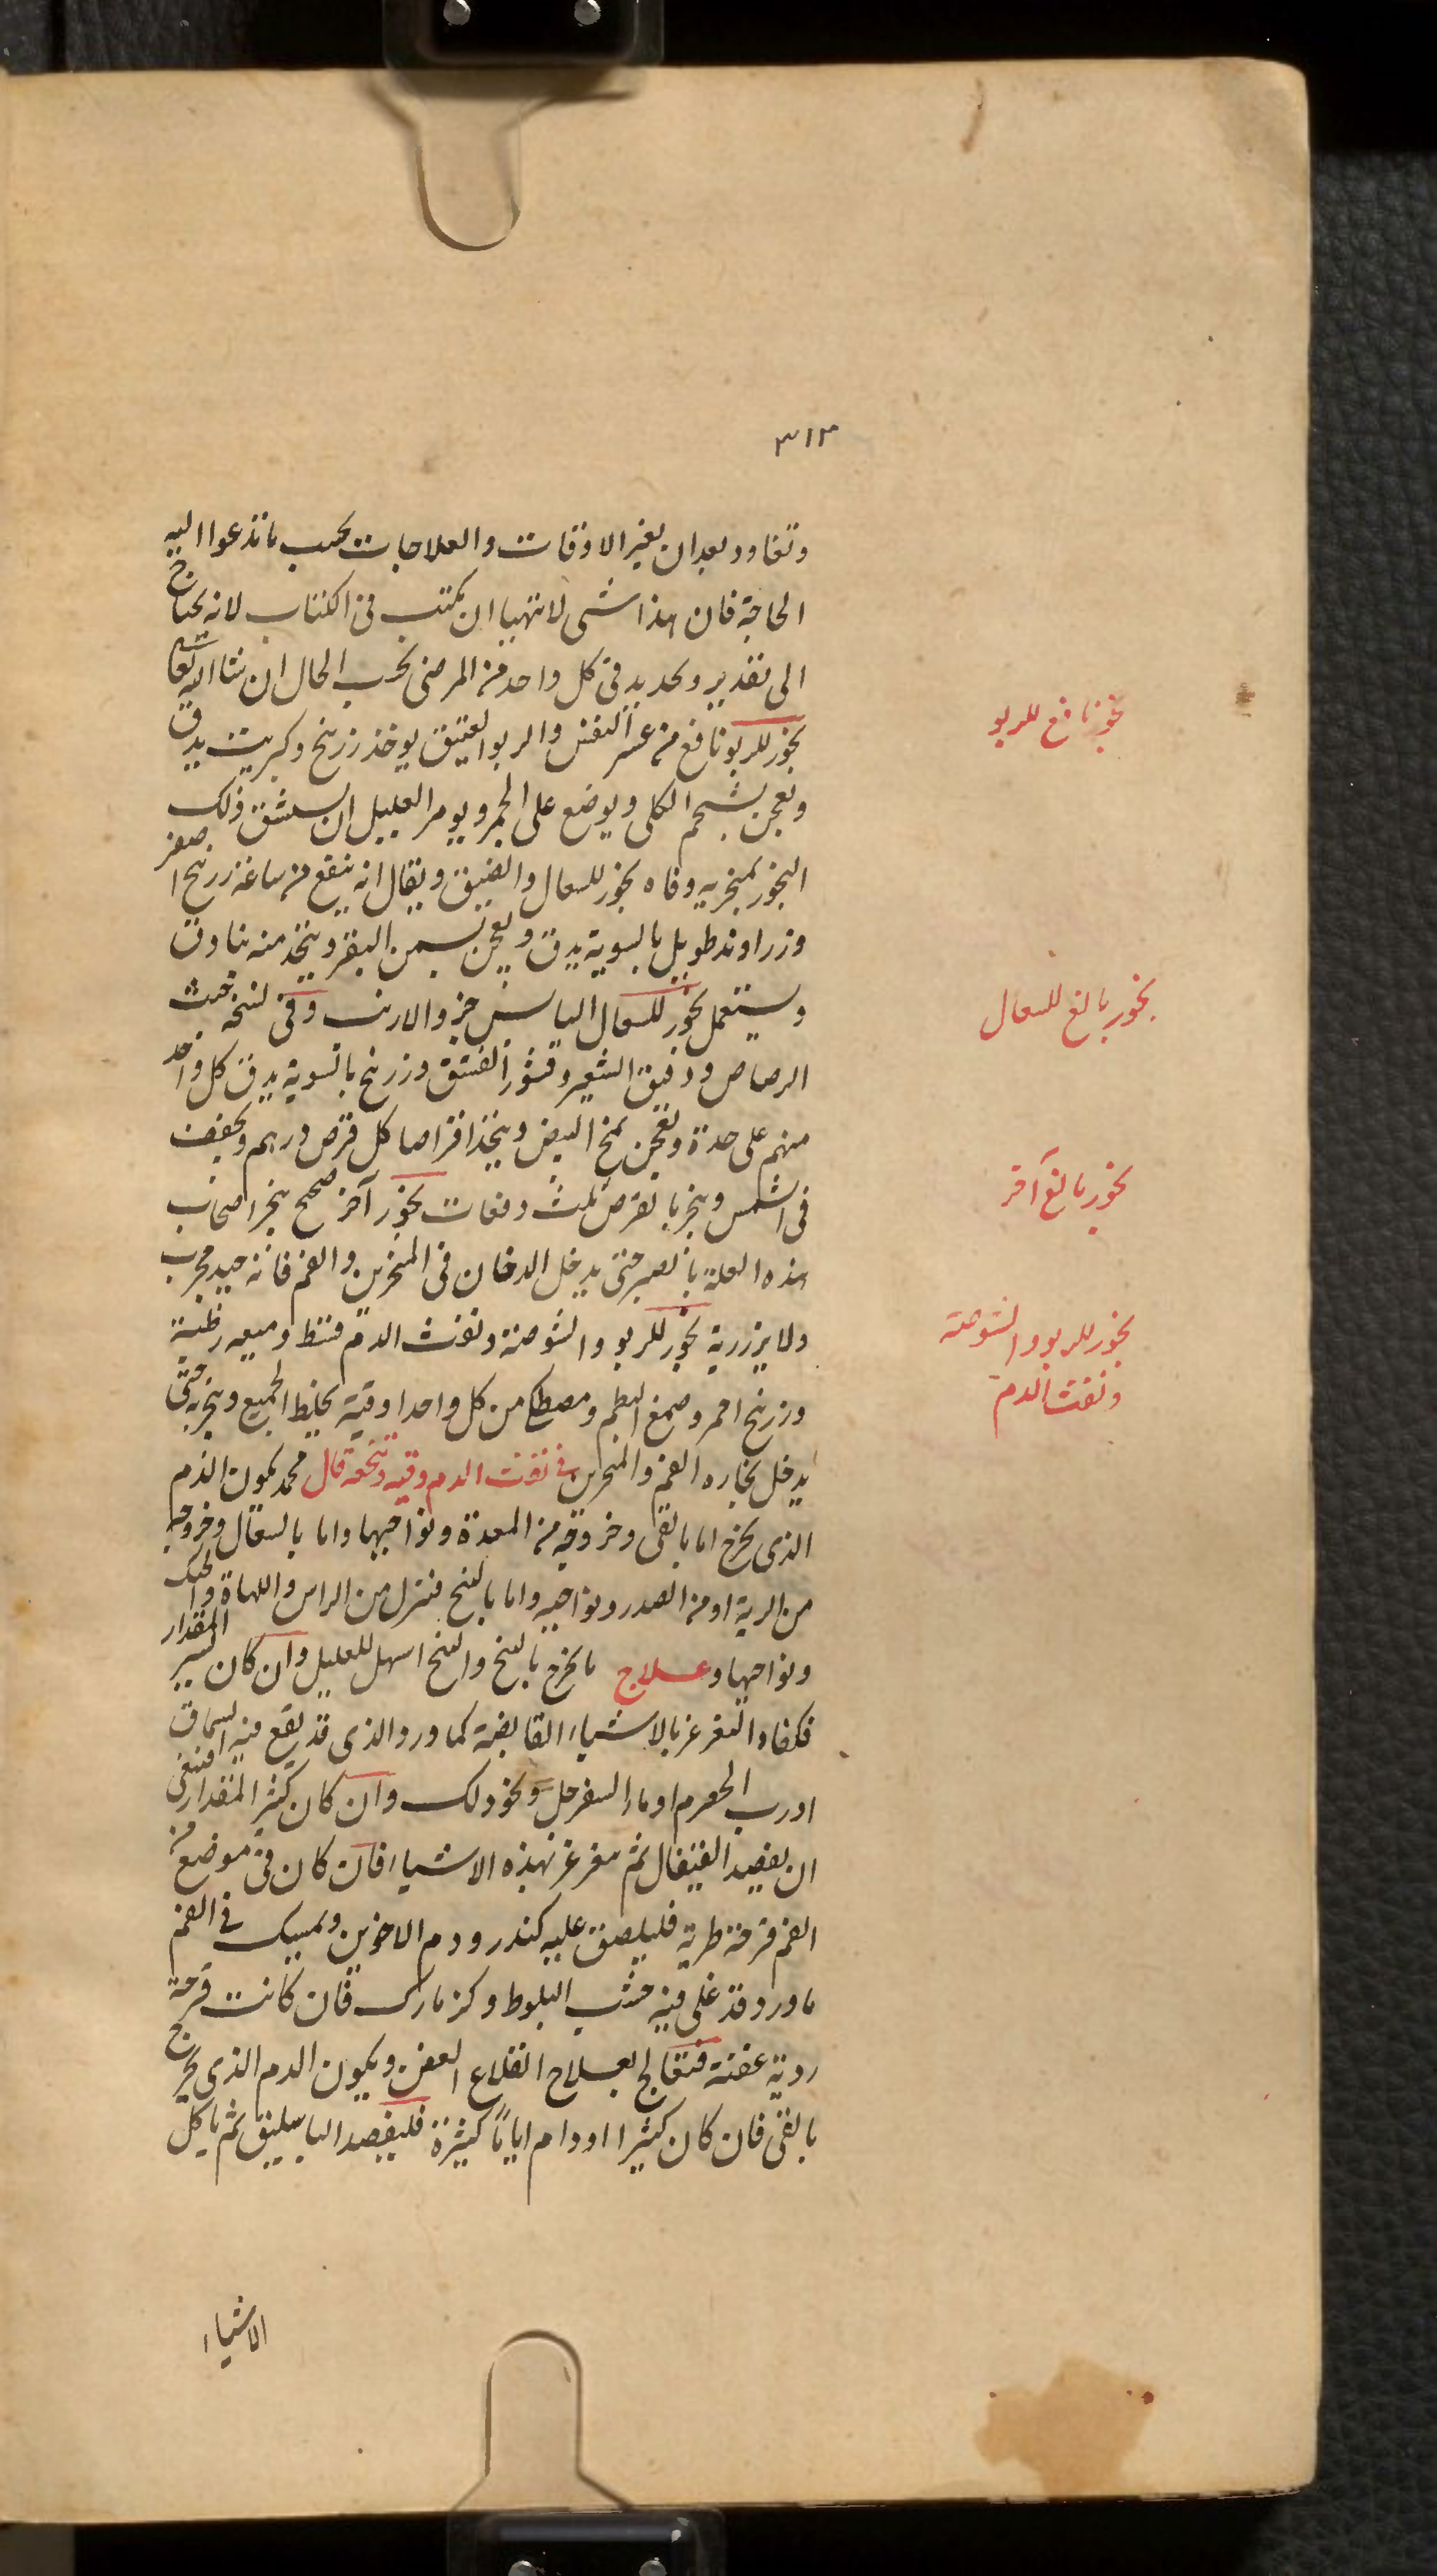 ٣١٣
وتعاود بعد ان بغير الاوقات والعلاجات بحسب ما تدعوا اليه
الحاجة فان هذا شى لا يتهيا ان يكتب فى الكتاب لانه يحتاج
الى تقدير وتحديد فى كل واحد من المرضى بحسب الحال ان شا الله تعالى
بخور للربو نافع من عسر النفس والربو العتيق يوخذ زرنيخ وكبريت يدق
ويعجن بشحم الكلى ويوضع على الجمر ويومر العليل ان يستنشق ذلك
البخور بمنخريه وفاه بخور للسعال والضيق ويقال انه ينفع من ساعة زرنيخ اصفر
وزراوند طويل بالسوية يدق ويعجن بسمن البقر ويتخذ منه بنادق
ويستعمل بخور للسعال اليابس خرو الارنب وفى نسخة خبث
الرصاص ودقيق الشعير وقشور الفستق وزرنيخ بالسوية يدق كل واحد
منهم على حدة ويعجن بمخ البيض ويتخذ اقراصا كل قرص درهم ويجفف
فى الشمس ويبخر بالقرص ثلث دفعات بخور آخر صحيح يبخر اصحاب
هذه العلة بالصبر حتى يدخل الدخان فى المنخرين والفم فانه جيد مجرب
ولا يزر ربة بخور للربو والشوصة ونفث الدم قسط وميعه رطبة
وزرنيخ احمر وصمغ البطم ومصطكى من كل واحد اوقية يخلط الجميع ويبخر به حتى
يدخل بخاره الفم والمنخرين فى نفث الدم وقيه وتنخعه قال محمد يكون الدم
الذى يخرج اما بالقى وخروقه من المعدة ونواحيها واما بالسعال وخروجه
من الرية او من الصدر ونواحيه واما بالنخع فينزل من الراس واللهاة والحنك
ونواحيها وعلاج ما يخرج بالنخع والنخع اسهل للعليل وان كان المقدار يسير
فكفاه التغرغر بالاشياء القابضة كماورد والذى قد يقع فيه السماق
او رب الحصرم او ماء السفرجل ونحو ذلك وان كان كثير المقدار فينبغى
ان يفصد القيفال ثم يتغرغر بهذه الاشياء فان كان فى موضع من
الفم قرحة طرية فليلصق عليه كندر ودم الاخوين ويمسك فى الفم
ماورد قد غلى فيه خشب البلوط وكزمارك فان كانت قرحة
ردية عفنة فتعالج بعلاج القلاع العفن ويكون الدم الذى يخرج
بالقى فان كان كثيرا او دام اياماً كثيرة فليفصد الباسليق ثم ياكل
الاشياء
بخور نافع للربو
بخور بالغ للسعال
بخور بالغ آخر
بخور للربو والشوصة
ونفث الدم